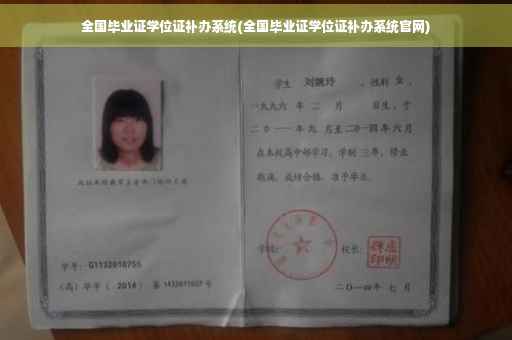 全国毕业证学位证补办系统(全国毕业证学位证补办系统官网)
学生 刘婉玲 ，性别 女 ，
一九九六 年 二 月 日生，于
二〇一一 年 九 月至 二〇一四 年 六 月
在本校高中部学习，学制 三 年，修业
期满，成绩合格，准予毕业。
学号：G1132010755
学校：
校长：
(高) 毕字 ( 2014 ) 第 1432011037 号
二〇一四年 七 月